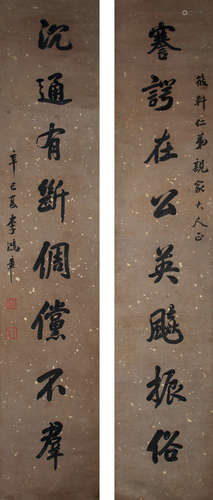 筱軒仁弟親家大人正
謇諤在公英飈振俗
沉通有斷倜儻不羣
辛巳夏李鴻章